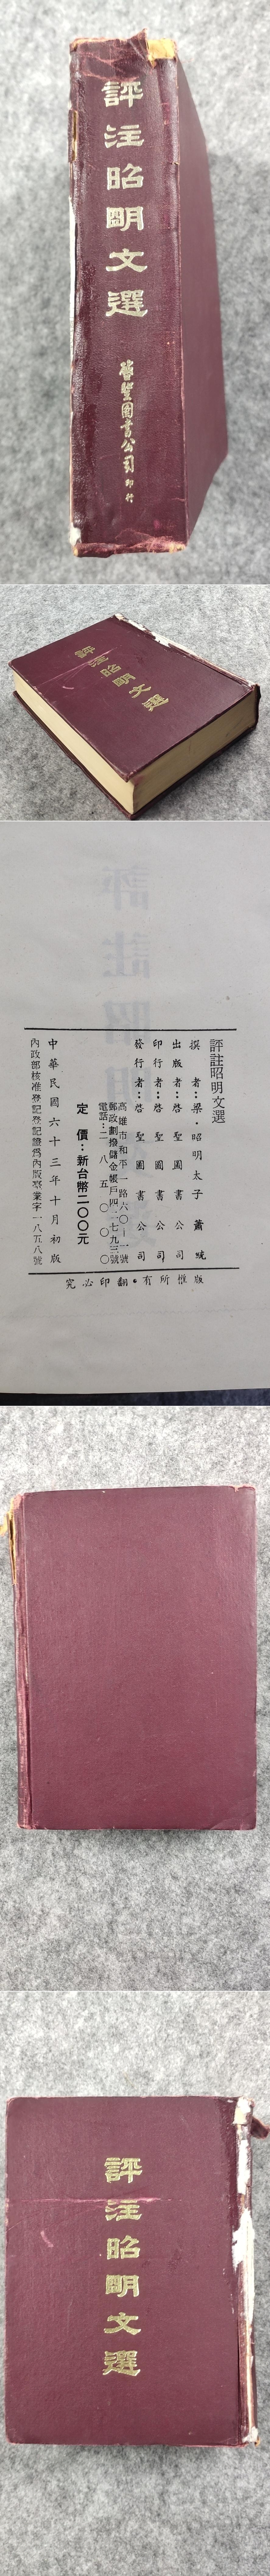 評注昭明文選
啓聖圖書公司印行
評注昭明文選
評註昭明
評註昭明文選
撰者：梁・昭明太子 蕭統
出版者：啓聖圖書公司
印行者：啓聖圖書公司
發行者：啓聖圖書公司
高雄市和平一路六〇一一號
郵政劃撥儲金帳戶四二七九三號
電話：二八五〇〇〇
定價：新台幣二〇〇元
中華民國六十三年十月初版
內政部核准登記登記證爲內版臺業字一八五八號
版權所有・翻印必究
評注昭明文選